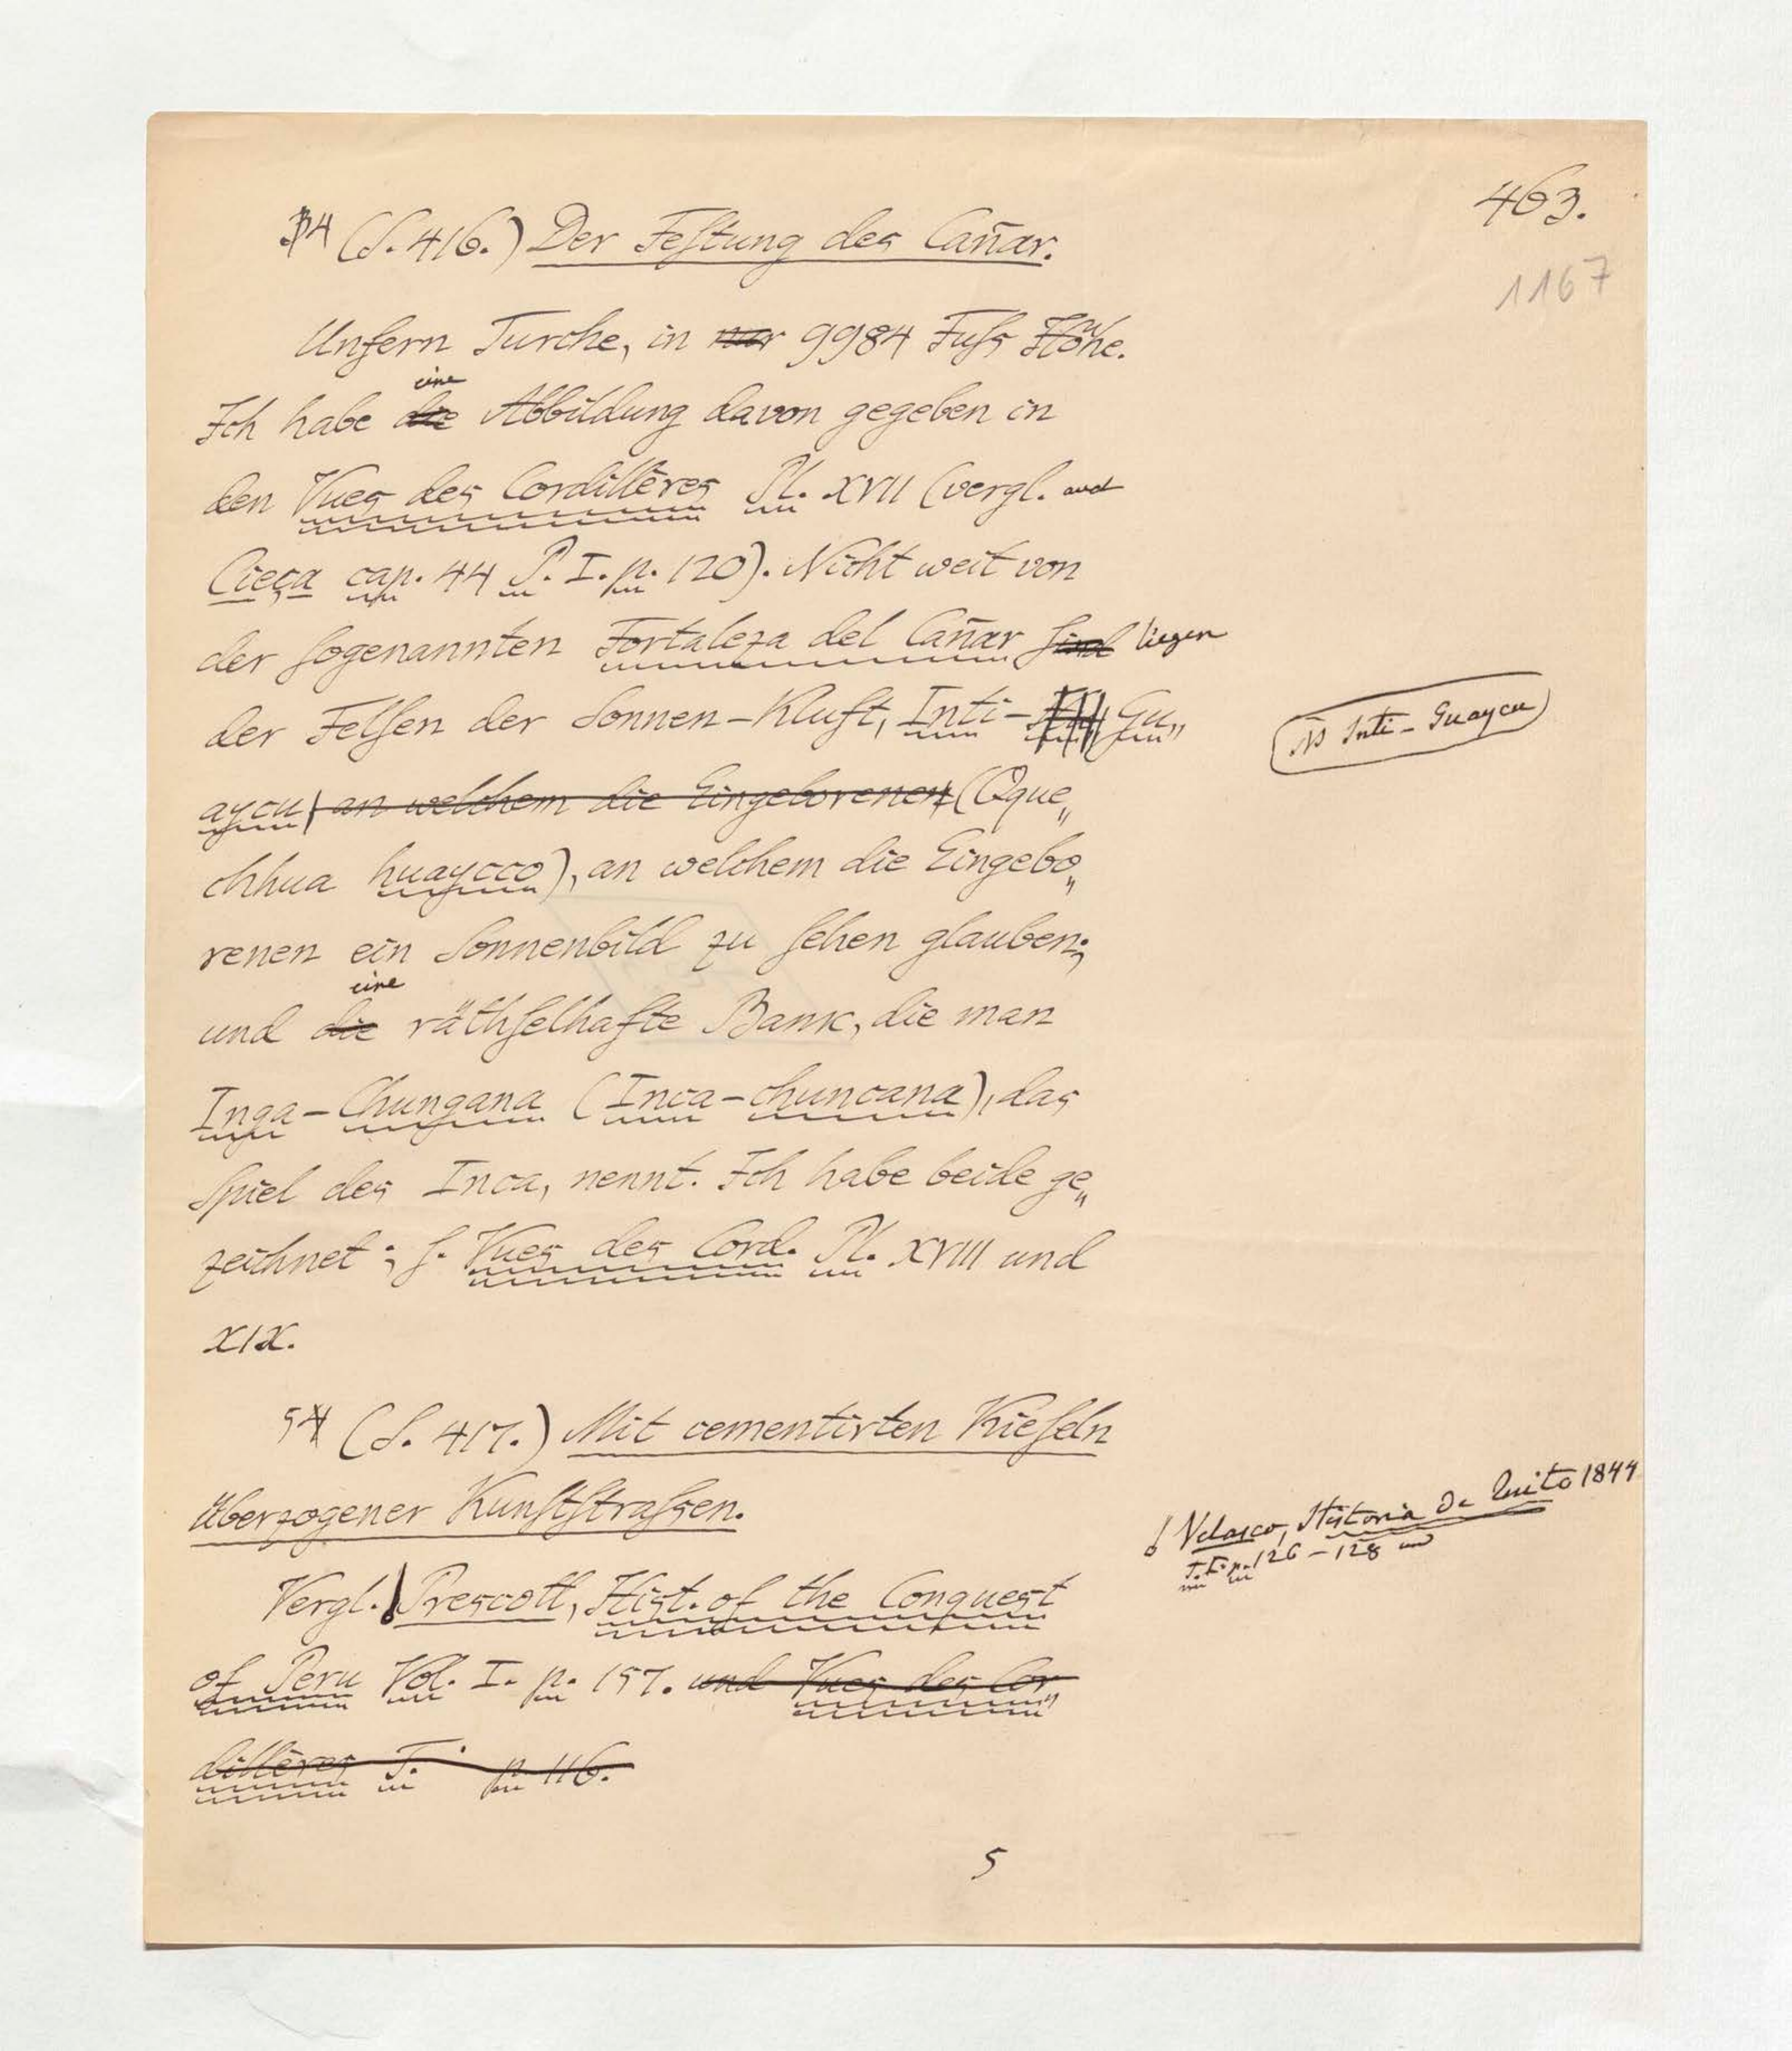 463.
1167
4 (S. 416.) Der Festung des Cañar.
Unfern Turche, in ~~nur~~ 9984 Fuss Höhe.
eine
Ich habe ~~die~~ Abbildung davon gegeben in
den Vues des Cordillères Pl. XVII (vergl. auch
Cieça cap. 44 P. I. p. 120). Nicht weit von
der sogenannten Fortaleza del Cañar ~~sind~~ liegen
der Felsen der Sonnen-Kluft, Inti- Gu„
Nb Inti-Guaycu
aycu ~~an welchem die Eingeborenen~~ (Qque„
chhua huaycco), an welchem die Eingebo„
renen ein Sonnenbild zu sehen glauben;
eine
und ~~die~~ räthselhafte Bank, die man
Inga-Chungana (Inca-chuncana), das
Spiel des Inca, nennt. Ich habe beide ge„
zeichnet; s. Vues des Cord. Pl. XVIII und
XIX.
5 ~~4~~ (S. 417.) Mit cementirten Kieseln
überzogener Kunststrassen.
Velasco, Historia de Quito 1844
T. I. p. 126-128 und
Vergl. Prescott, Hist. of the Conquest
of Peru Vol. I. p. 157. ~~und Vues des Cor„~~
~~dillères T. p. 116.~~
5